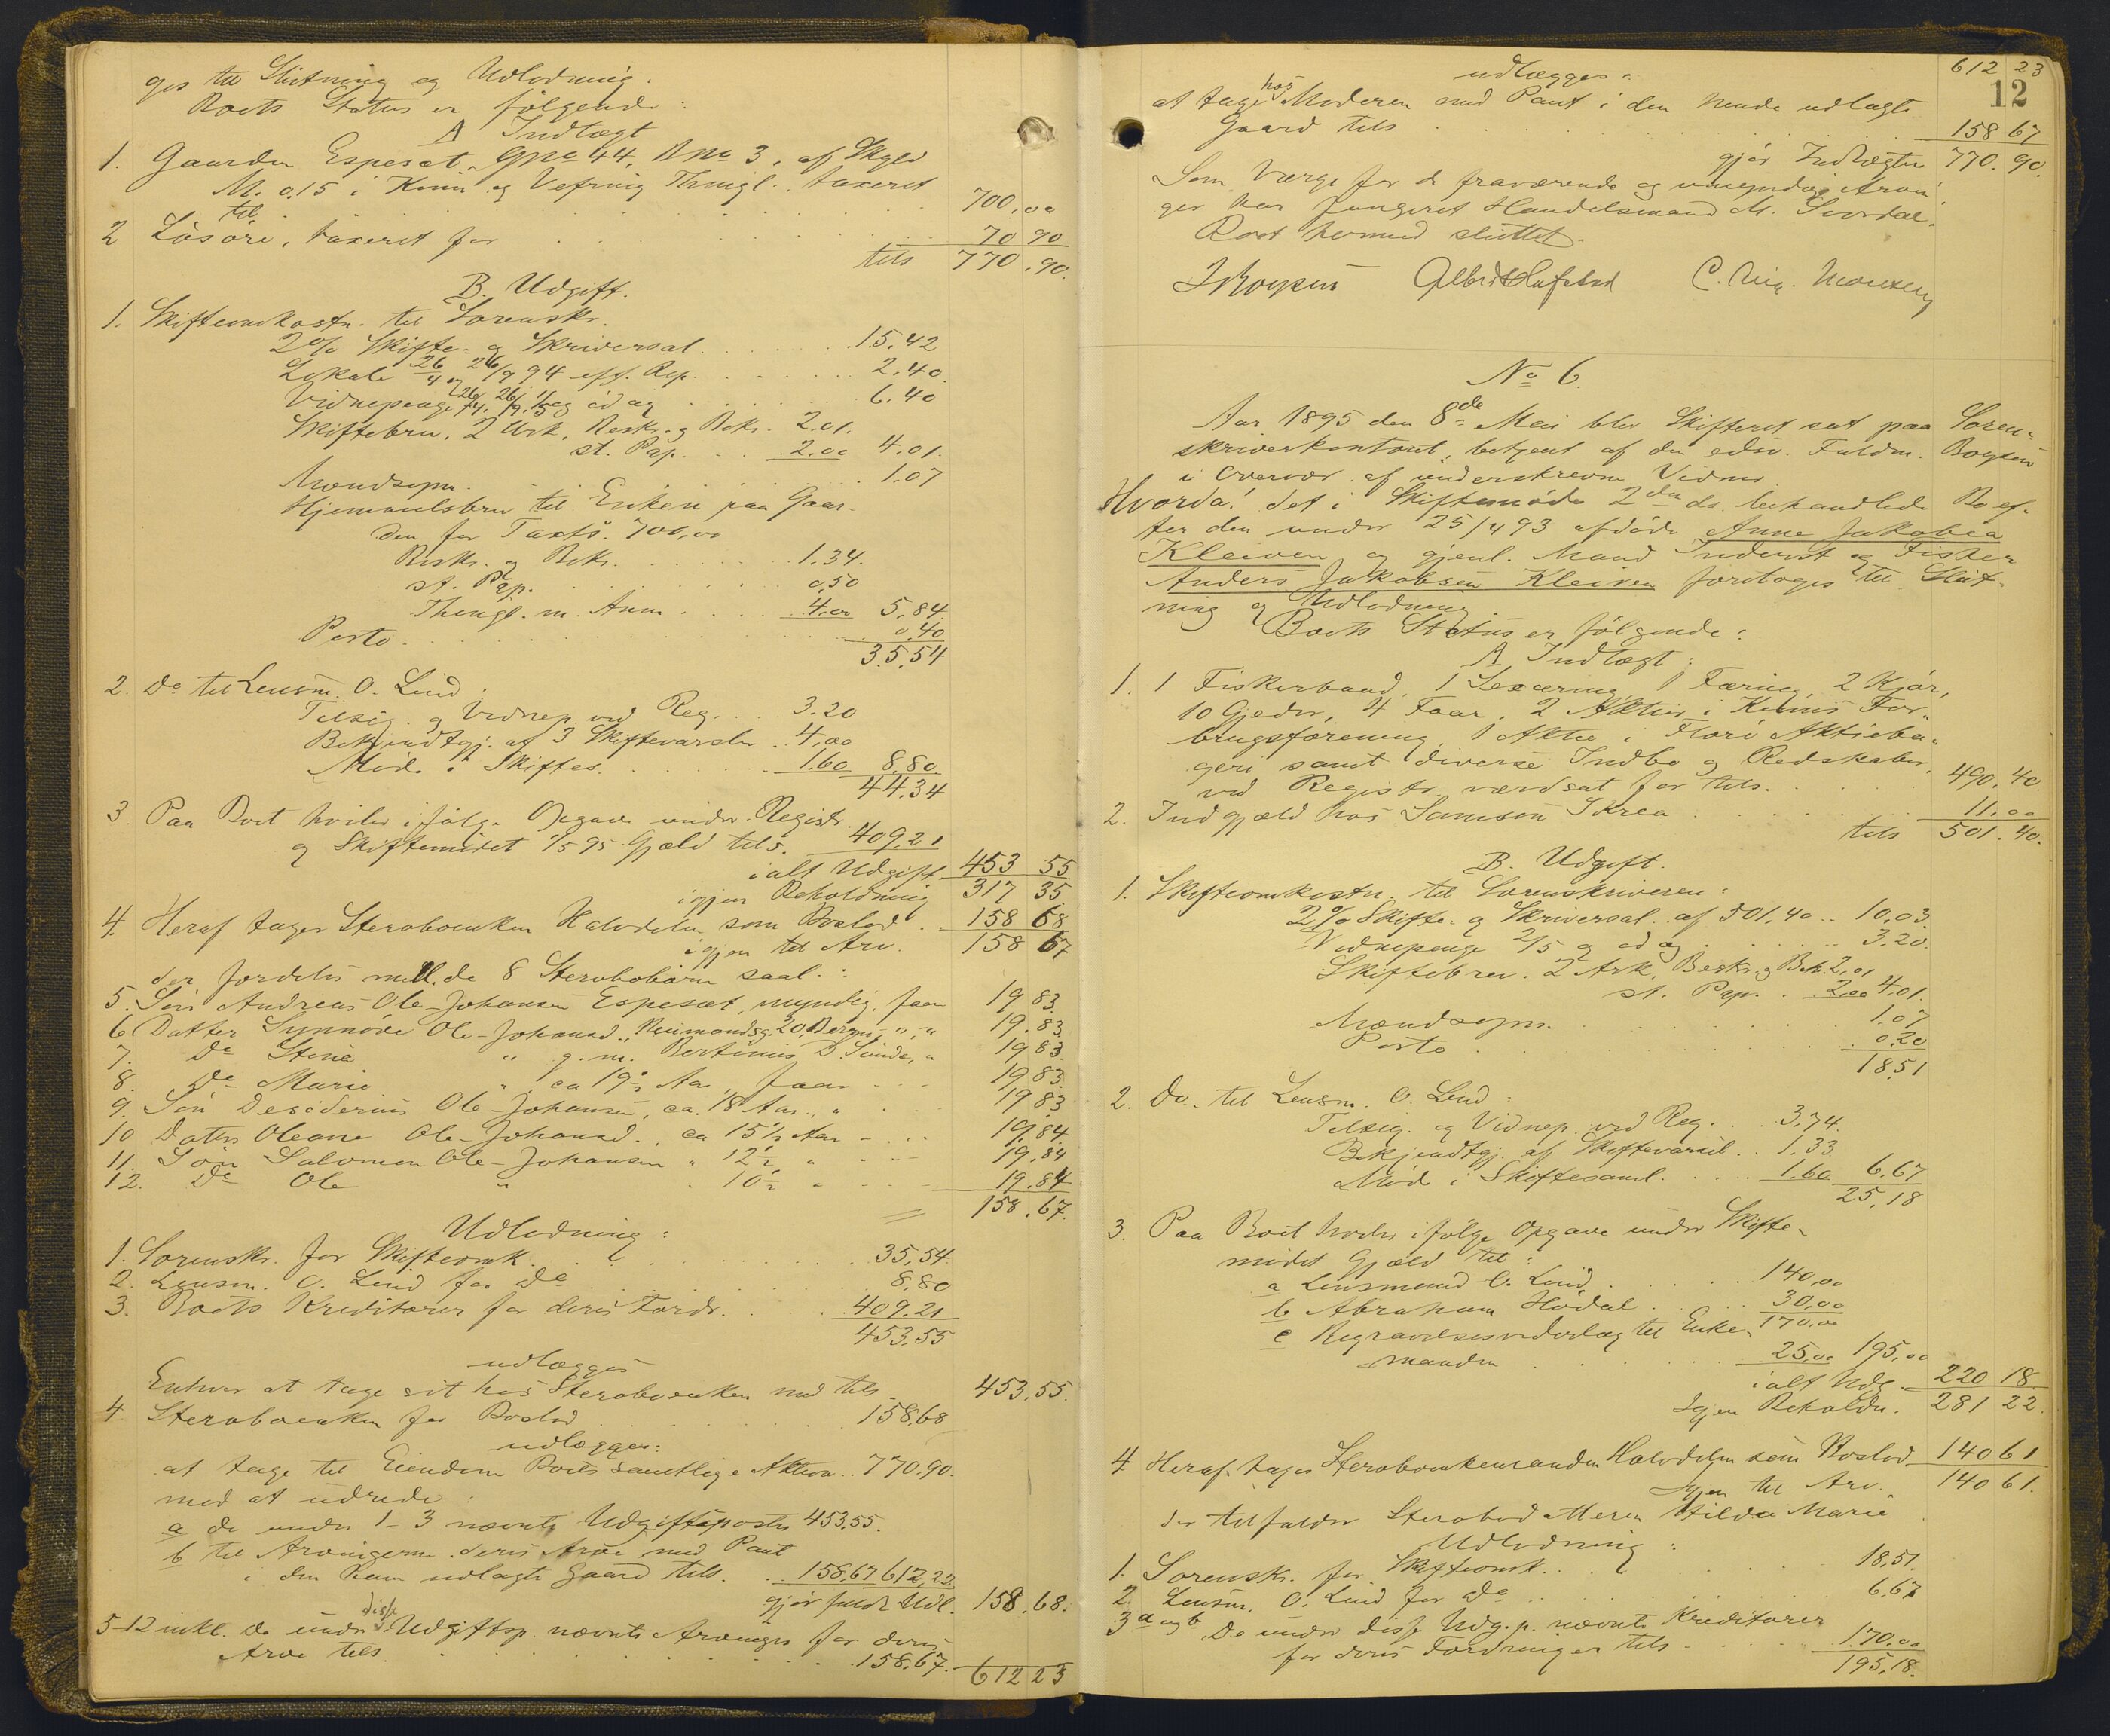 ges til Slutning og Udlodning.
Boets Status er følgende:
A Indtægt
1. Gaarden Espeset, Gno 44, Bno 3, af Skyld
M. 0.15 i Kinn og Vefring Thingl. taxeret
til 700,00
2 Løsøre, taxeret for 70 90
tils 770.90.
B. Udgift.
1. Skifteomkostn. til Sorenskr.
2 % Skifte- og Skriversal. 15.42
Lokale 26/4 og 26/9 94 eft. Rep. 2.40.
Vidnepenge 26/4. 26/9. 1/5 og idag 6.40
Skiftebrev. 2 Ark. Beskr. og Bekr. 2.01.
st. Pap. 2.00 4.01.
Mændsopn. 1.07
Hjemmelsbrev til Enken paa Gaar-
den for Taxts. 700,00
Beskr. og Bekr. 1.34.
st. Pap. 0,50
Thingl. m. Anm. 4.00 5,84.
Porto. 0.40
35,54
2. Do til Lensm. O. Lind:
Tilsig. og Vidnep. ved Reg. 3.20
Bekjendtgj. af 3 Skiftevarsler 4,00
Møde i Skiftes. 1.60 8,80.
44.34
3. Paa Boet hviler ifølge Opgave under Registr.
og Skiftemødet 1/5 95 Gjæld tils. 409,21
ialt Udgift 453 55.
igjen Beholdning 317 35
4. Heraf tager Sterboenken Halvdelen som Boslod 158 68
igjen til Arv. 158 67
der fordeles mell. de 8 Sterbobørn saal.:
5. Søn Andreas Ole-Johansen Espeset, myndig, faar 19 83.
6. Datter Synnøve Ole-Johansd., Neumandsg. 20, Bergen, " " 19.83.
7. Do Stine " g. m. Bertinius D. Sunde, " 19 83
8. Do Marie " ca 19½ Aar, faar 19 83.
9. Søn Desiderius Ole-Johansen, ca. 18 Aar, " 19 83
10 Datter Oleane Ole-Johansd., ca 15½ Aar 19.84.
11. Søn Salomon Ole-Johansen " 12½ " 19.84
12. Do Ole " " 10½ " 19.84
158.67.
Udlodning:
1. Sorenskr. for Skifteomk. 35,54.
2. Lensm. O. Lind for Do 8,80
3. Boets Kreditorer for deres Fordr. 409.21
453.55
udlægges
Enhver at tage sit hos Sterboenken med tils. 453,55.
4 Sterboenken for Boslod 158.68
udlægges:
at tage til Eiendom Boets samtlige Aktiva 770.90.
mod at udrede:
a de under 1-3 nævnte Udgiftsposter 453,55.
b til Arvingerne deres Arv med Pant
i den Ham udlagte Gaard tils. 158,67 612,22
gjør fuldt Udl. 158.68.
5-12 inkl. De under disse Udgiftsp. nævnte Arvinger for deres
Arve tils. 158,67. 612 23
612 23
12
udlægges:
at tage hos Moderen med Pant i den hende udlagte
Gaard tils 158 67
gjør Indtægten 770.90.
Som Værge for de fraværende og umyndige Arvin-
ger har fungeret Handelsmand M. Sørdal.
Boet hermed sluttet.
J Boysen Albert Hafstad C. Mig. Monssen
No 6.
Aar 1895 den 8de Mai blev Skifteret sat paa Soren-
skriverkontoret, betjent af den edsv. Fuldm. Boysen
i Overvær af underskrevne Vidner
Hvorda: det i Skiftemøde 2den ds. behandlede Bo ef-
ter den under 25/4 93 afdøde Anne Jakobea
Kleiven og gjenl. Mand Inderst og Fisker
Anders Jakobsen Kleiven foretoges til Slut-
ning og Udlodning.
Boets Status er følgende:
A Indtægt:
1. 1 Fiskerbaad, 1 Sexæring, 1 Færing, 2 Kjør,
10 Gjeder, 4 Faar, 2 Aktier i Kinns For-
brugsforening, 1 Aktie i Florø Aktieba-
geri samt diverse Indbo og Redskaber,
ved Registr. værdsat for tils. 490.40.
2. Indgjæld hos Samson Skrea 11.00
tils 501.40.
B. Udgift.
1. Skifteomkostn. til Sorenskriveren:
2% Skifte- og Skriversal. af 501,40 10,03.
Vidnepenge 2/5 og idag 3.20.
Skiftebrev. 2 Ark, Beskr. og Bekr. 2,01
st. Pap. 2,00 4.01.
Mændsopn. 1.07
Porto 0.20
18,51
2. Do. til Lensm. O. Lind:
Tilsig. og Vidnep. ved Reg. 3,74.
Bekjendtgj. af Skiftevarsel 1.33.
Møde i Skiftesaml. 1.60. 6.67
25,18
3. Paa Boet hviler ifølge Opgave under Skifte-
mødet Gjæld til:
a Lensmand O. Lind 140,00
b Abraham Hødal 30,00
170,00
c Begravelsesvederlag til Enke-
manden 25,00 195,00
ialt Udg. 220 18.
Igjen Beholdn. 281 22.
4. Heraf tager Sterboenkemanden Halvdelen som Boslod 140 61
Igjen til Arv. 140 61.
der tilfalder Sterbodatteren Hilda Marie
Udlodning:
1. Sorenskr. for Skifteomk. 18.51.
2. Lensm. O. Lind for Do 6.67
3 a og b De under disse Udg. p. nævnte Kreditorer
for deres Fordringer tils 170.00
195,18.